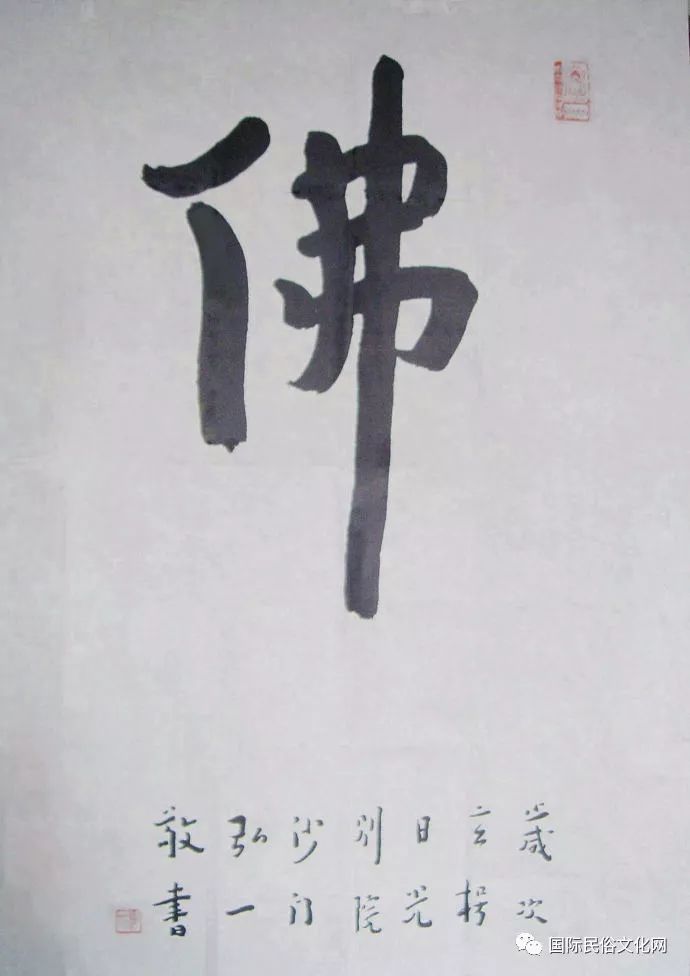 佛
歲次
玄枵
日光
別院
沙门
弘一
敬書
国际民俗文化网